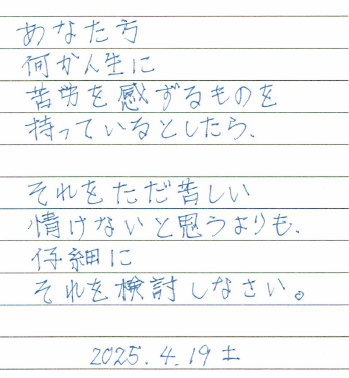 あなた方
何か人生に
苦労を感ずるものを
持っているとしたら、
それをただ苦しい
情けないと思うよりも、
仔細に
それを検討しなさい。
2025.4.19 土